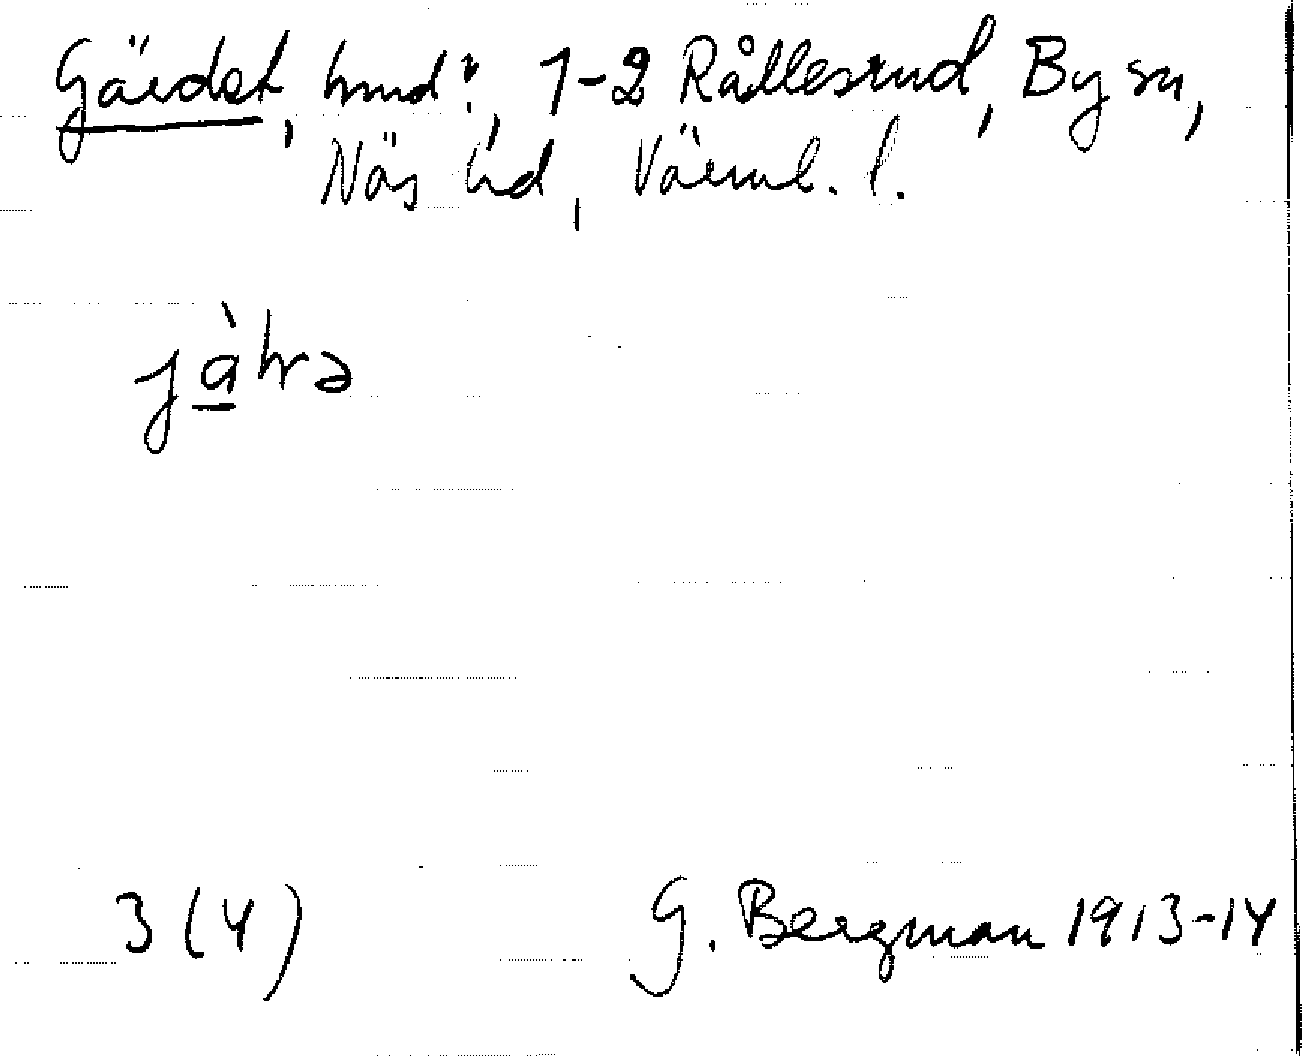 Gärdet, hmd?, 1-2 Rållesrud, By sn,
Näs hd, Värml. l.
jàhrə
3 (4)
G. Bergman 1913-14